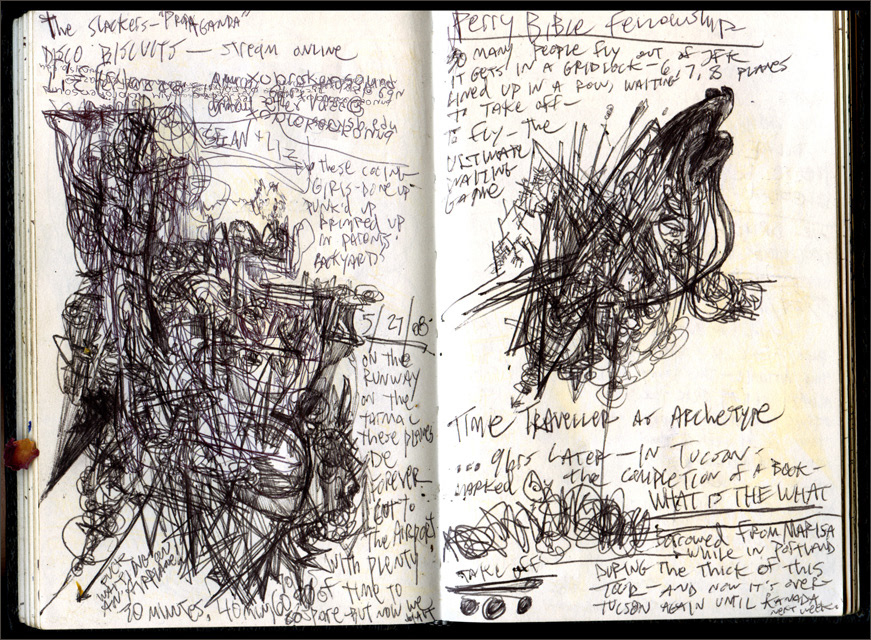 The Slackers - "PROPAGANDA"
DISCO BISCUITS — STREAM ONLINE
SEAN + LIZ
these
GIRLS - DONE UP
PUNK'D UP
PRIMPED UP
IN PARENTS'
BACKYARDS
5/27/08
ON THE
RUNWAY
ON THE
TARMAC
these PLANES
FOREVER
to
the AIRPORT
WITH PLENTY
OF TIME TO
SPARE - BUT NOW WE
WAIT
FUCK
WAITING ON
AN AIRPLANE
30 MINUTES. 40 MIN
Perry BIBLE Fellowship
SO MANY PEOPLE FLY OUT OF JFK
IT GETS IN A GRIDLOCK - 6, 7, 8 PLANES
LINED UP IN A ROW, WAITING
TO TAKE OFF -
TO FLY - the
ULTIMATE
WAITING
GAME
TIME TRAVELLER AS ARCHETYPE
... 9 hrs LATER - IN TUCSON -
MARKED by the COMPLETION OF A BOOK -
WHAT IS THE WHAT
borrowed FROM MARISA
while IN PORTLAND
DURING the THICK OF this
TOUR - AND NOW IT'S OVER -
TUCSON AGAIN UNTIL KANADA
NEXT WEEK.
TAKE OFF